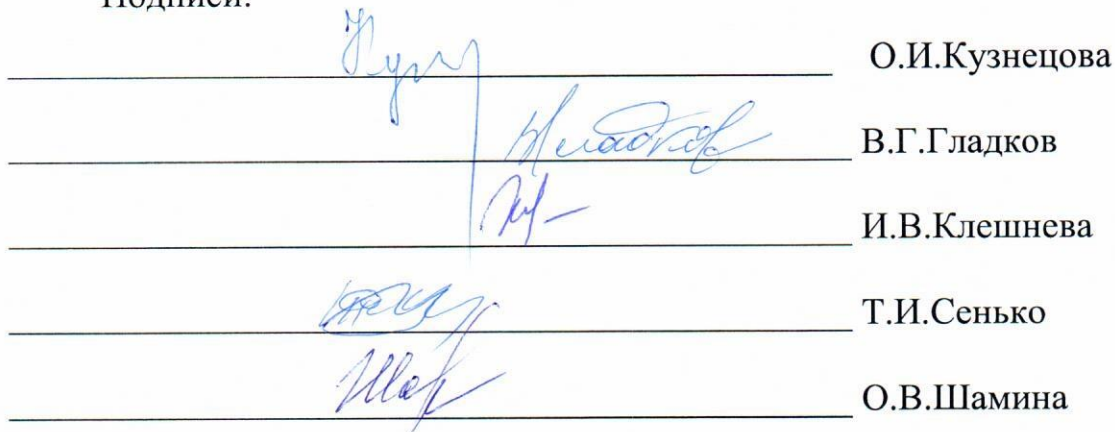 Подписи:
О.И.Кузнецова
Гладков В.Г.Гладков
И.В.Клешнева
Т.И.Сенько
О.В.Шамина